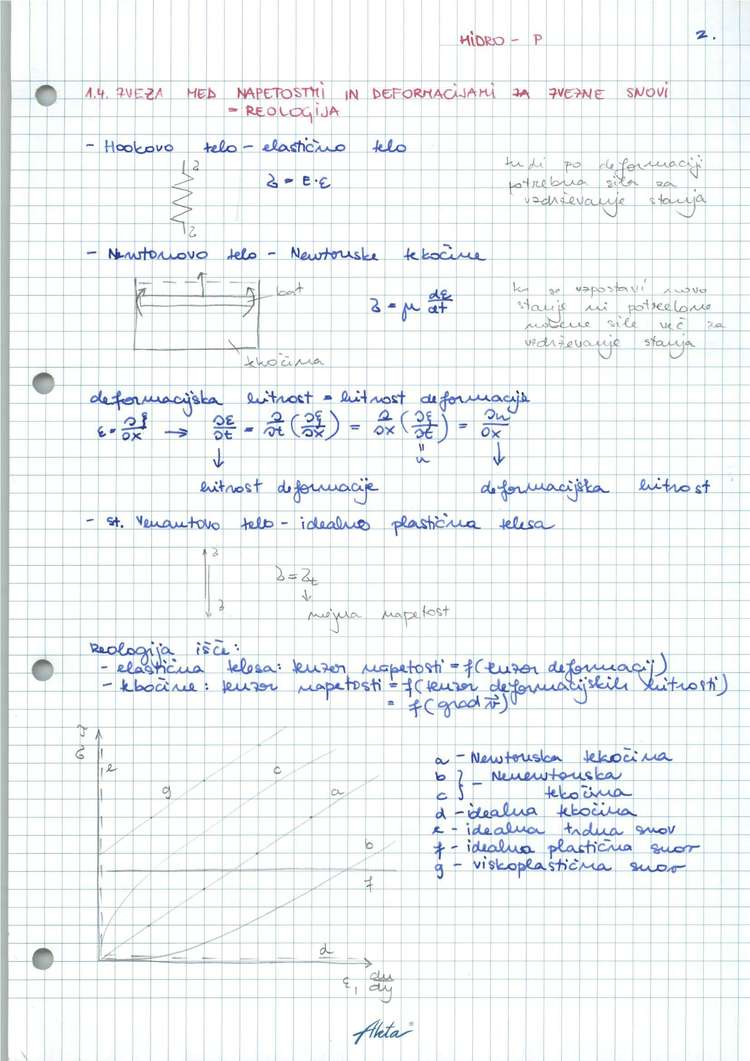 HIDRO - P
2.
1.4. ZVEZA MED NAPETOSTMI IN DEFORMACIJAMI ZA ZVEZNE SNOVI
- REOLOGIJA
- Hookovo telo - elastično telo
σ
σ = E·ε
σ
tudi po deformaciji
potrebna sila za
vzdrževanje stanja
- Newtonovo telo - Newtonske tekočine
bat
σ = μ dε/dt
tekočina
ko se vzpostavi novo
stanje ni potrebno
nobene sile več za
vzdrževanje stanja
deformacijska hitrost = hitrost deformacije
ε = ∂ξ/∂x → ∂ε/∂t = ∂/∂t (∂ξ/∂x) = ∂/∂x (∂ξ/∂t) = ∂u/∂x
" u
↓ ↓
hitrost deformacije deformacijska hitrost
- St. Venantovo telo - idealno plastična telesa
σ
σ = σt
σ
↓
mejna napetost
Reologija išče:
- elastična telesa: tenzor napetosti = f(tenzor deformacij)
- tekočine: tenzor napetosti = f(tenzor deformacijskih hitrosti)
= f(grad v⃗)
τ
σ
e
g
c
a
b
f
d
ε, du/dy
a - Newtonska tekočina
b } - Nenewtonska
c } tekočina
d - idealna tekočina
e - idealna trdna snov
f - idealna plastična snov
g - viskoplastična snov
Akta